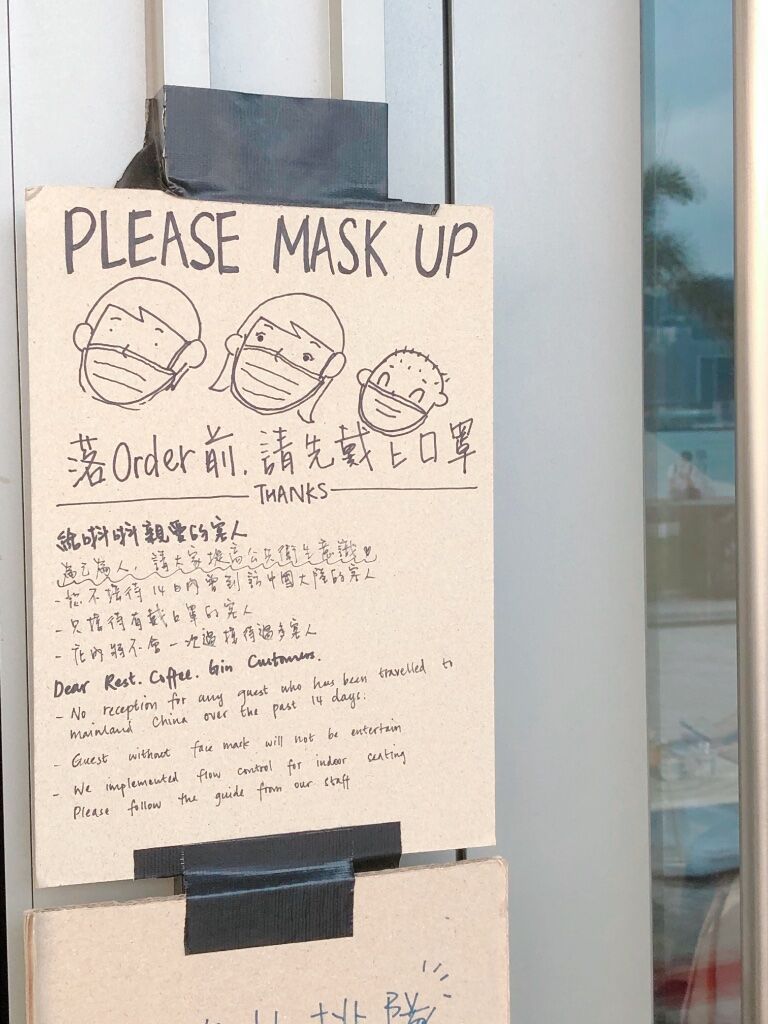 PLEASE MASK UP
落Order前,請先戴上口罩
THANKS
給呀呀親愛的客人
為己為人,請大家提高公共衛生意識
- 恕不接待14日內曾到訪中國大陸的客人
- 只接待有戴口罩的客人
- 店內將不會一次過接待過多客人
Dear Rest. Coffee. Gin Customers.
- No reception for any guest who has been travelled to
mainland China over the past 14 days.
- Guest without face mark will not be entertain
- We implemented flow control for indoor seating
Please follow the guide from our staff
排隊